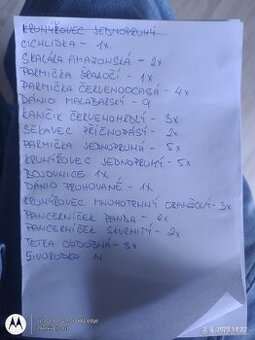 KRUNÝŘOVEC JEDNOPRUHÝ
CICHLIDKA - 1x
SKALÁRA AMAZONSKÁ - 2x
PARMIČKA ŽRALOČÍ - 1x
PARMIČKA ČERVENOOCASÁ - 4x
DÁNIO MALABARSKÝ - 9
KANČÍK ČERVENOHRDLÝ - 3x
SEKAVEC PŘÍČNOPASÝ - 2x
PARMIČKA JEDNOPRUHÁ - 5x
KRUNÝŘOVEC JEDNOPRUHÝ - 5x
BOJOVNICE 1x
DÁNIO PRUHOVANÉ - 1x
KRUNÝŘOVEC MNOHOTRNNÝ ORANŽOVÝ - 3x
PANCÉŘNÍČEK PANDA - 2x
PANCÉŘNÍČEK SKVRNITÝ - 2x
TETRA OZDOBNÁ - 5x
1x
motorola edge
2. 5. 2025